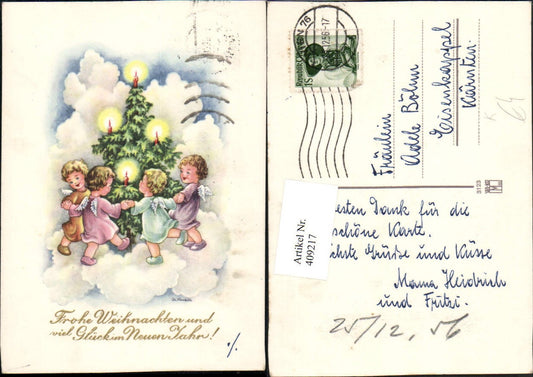 Frohe Weihnachten und
viel Glück im Neuen Jahr!
WIEN 76
12.56-17
Fräulein
Adele Böhm
Eisenkappel
Kärnten.
64
3123
Artikel Nr.
409217
esten Dank für die
schöne Karte.
chste Grüsse und Küsse
Mama Heidrich
und Fritzi.
25/12. 56